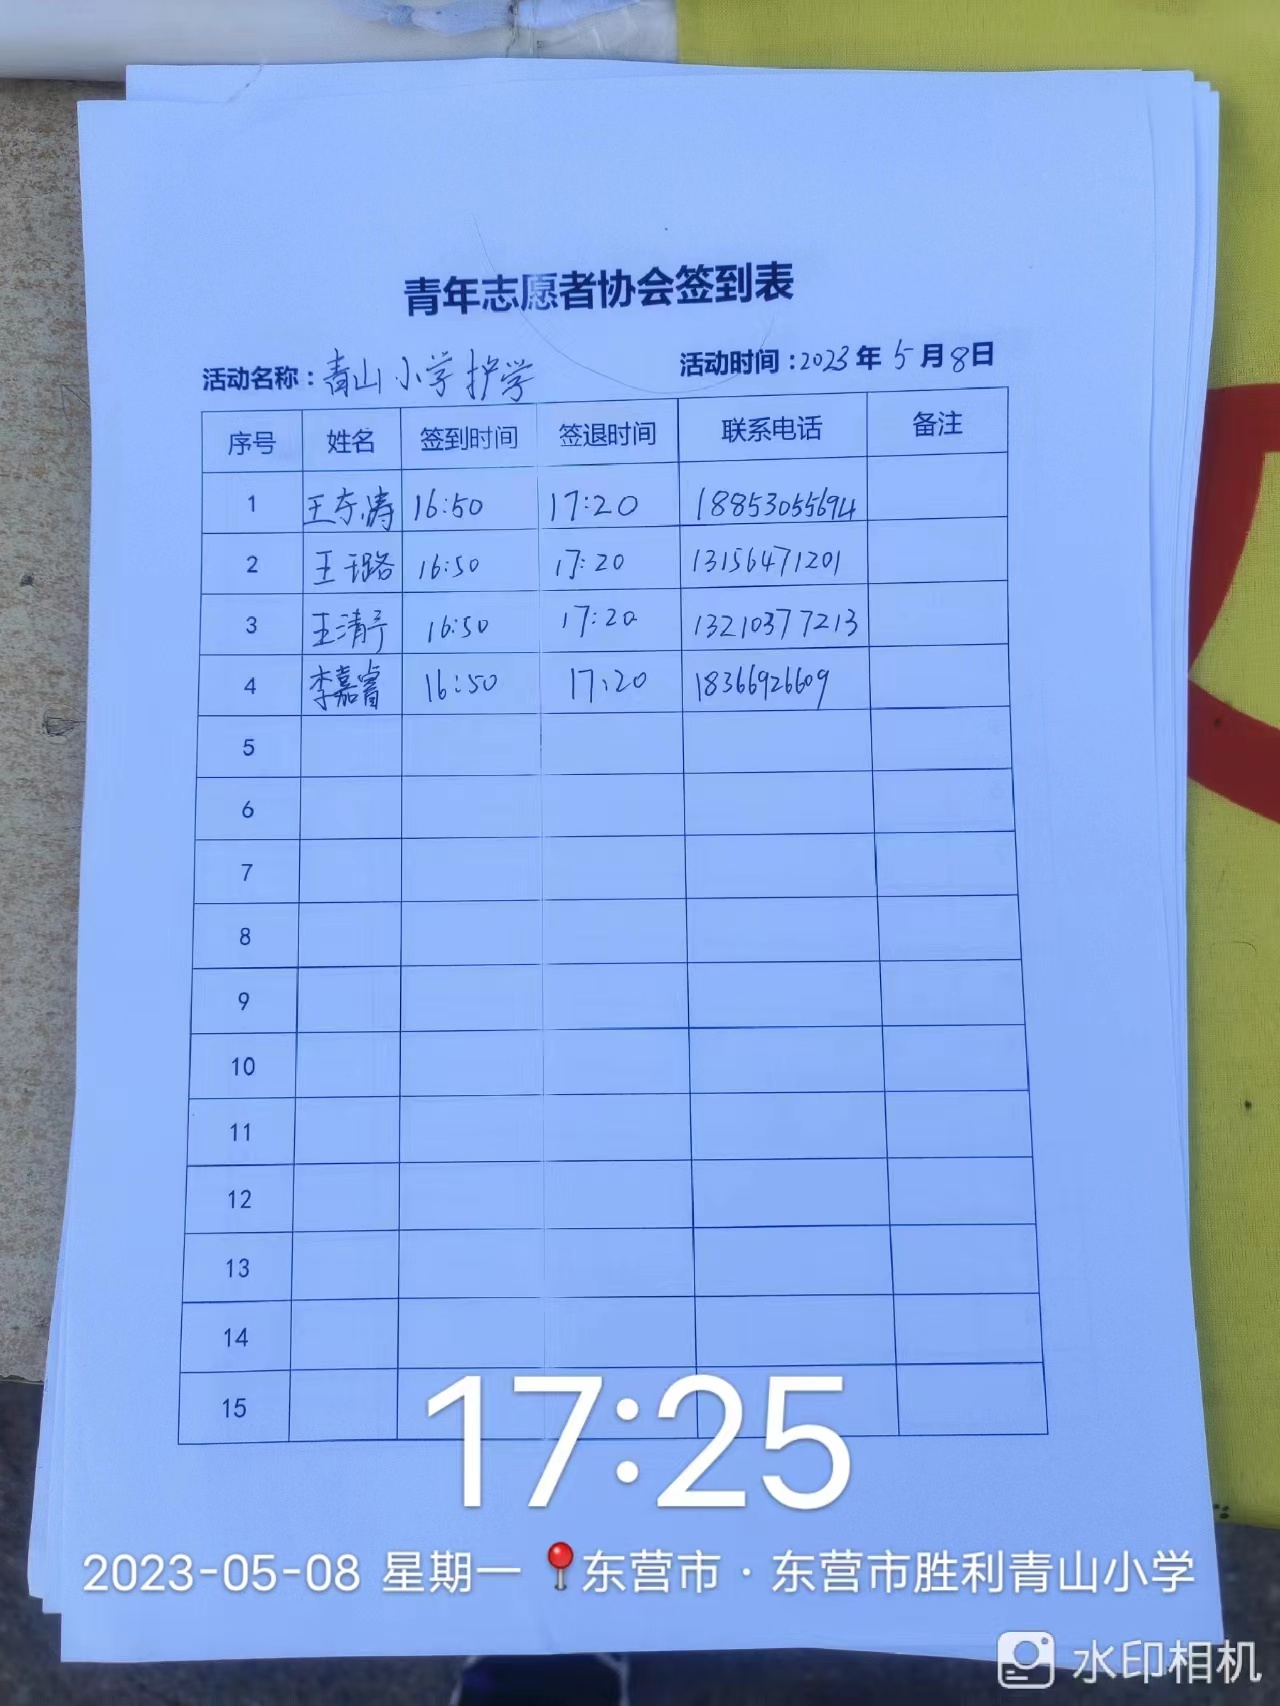 青年志愿者协会签到表
活动名称：青山小学护学 活动时间：2023年5月8日
序号 姓名 签到时间 签退时间 联系电话 备注
1 王东涛 16:50 17:20 18853055694
2 王璐 16:50 17:20 13156471201
3 王清宁 16:50 17:20 13210377213
4 李嘉睿 16:50 17:20 18366926609
5
6
7
8
9
10
11
12
13
14
15
17:25
2023-05-08 星期一 东营市·东营市胜利青山小学
水印相机